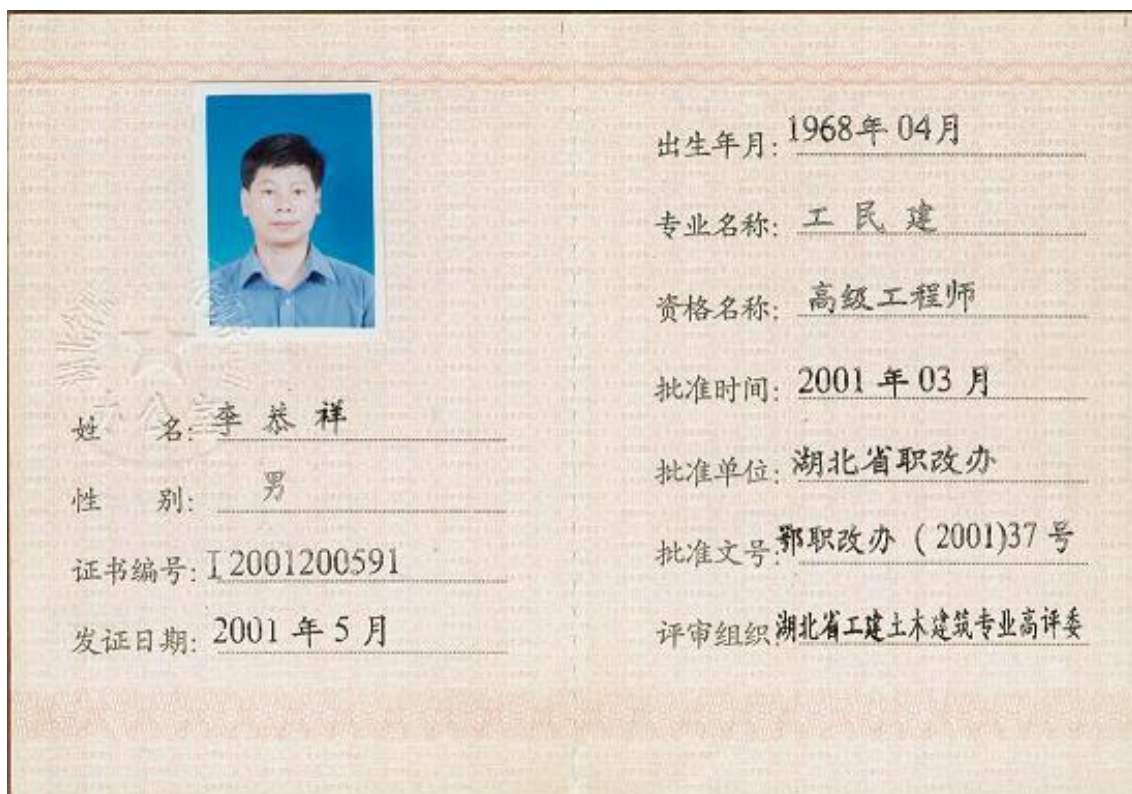 姓 名: 李恭祥
性 别: 男
证书编号: I2001200591
发证日期: 2001 年 5 月
出生年月: 1968年 04月
专业名称: 工 民 建
资格名称: 高级工程师
批准时间: 2001 年 03 月
批准单位: 湖北省职改办
批准文号: 鄂职改办 ( 2001)37 号
评审组织: 湖北省工建土木建筑专业高评委